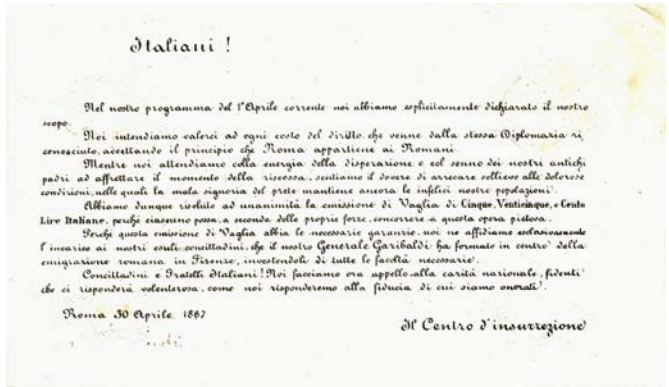 Italiani !
Nel nostro programma del 1º Aprile corrente noi abbiamo esplicitamente dichiarato il nostro
scopo.
Noi intendiamo valerci ad ogni costo del diritto che venne dalla stessa Diplomazia ri,
conosciuto, accettando il principio che Roma appartiene ai Romani.
Mentre noi attendiamo colla energia della disperazione e col senno dei nostri antichi
padri ad affrettare il momento della riscossa, sentiamo il dovere di arrecare sollievo alle dolorose
condizioni, nelle quali la mala signoria del prete mantiene ancora le infelici nostre popolazioni.
Abbiamo dunque risoluto ad unanimità la emissione di Vaglia di Cinque, Venticinque, e Cento
Lire Italiane, perchè ciascuno possa, a seconda delle proprie forze, concorrere a questa opera pietosa.
Perchè questa emissione di Vaglia abbia le necessarie garanzie, noi ne affidiamo esclusivamente
l'incarico ai nostri esuli concittadini, che il nostro Generale Garibaldi ha formato in centro della
emigrazione romana in Firenze, investendoli di tutte le facoltà necessarie.
Concittadini e Fratelli Italiani! Noi facciamo ora appello alla carità nazionale, fidenti
che ci risponderà volenterosa, come noi risponderemo alla fiducia di cui siamo onorati.
Roma 30 Aprile 1867
Il Centro d'insurrezione